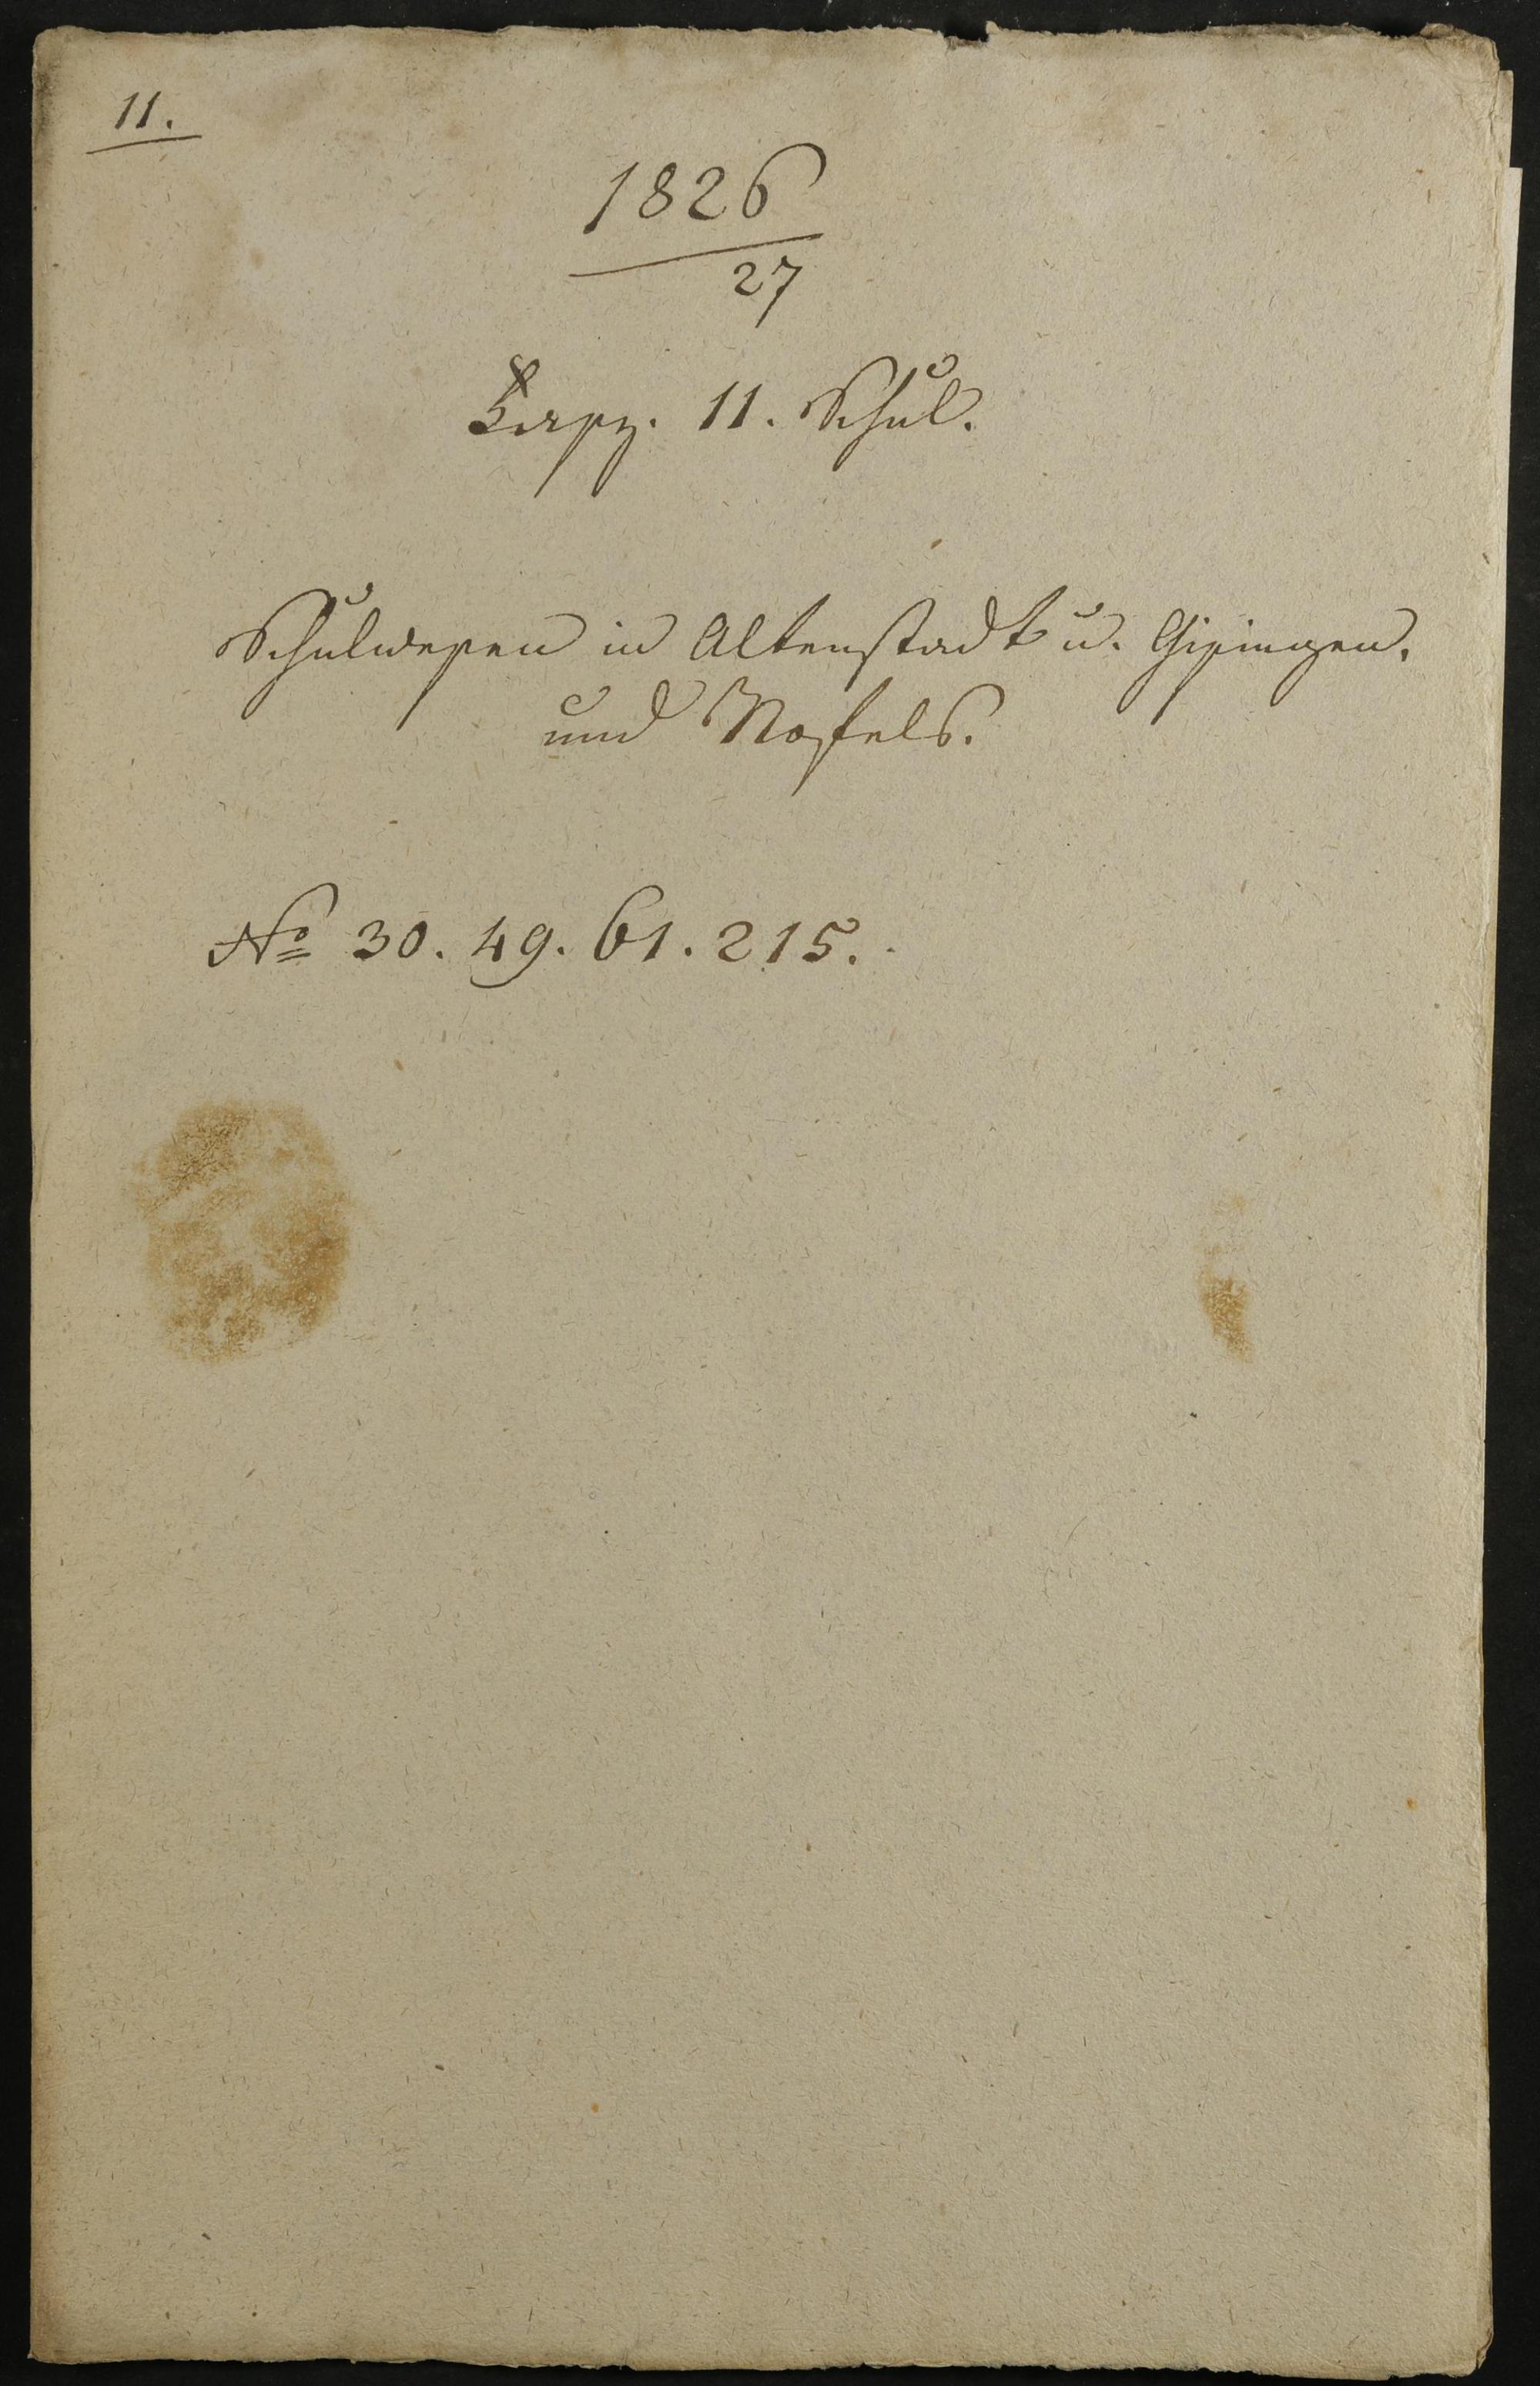 11.
1826
27
Fasz. 11. Schul.
Schulwesen in Altenstadt u. Gisingen.
und Nofels.
No 30. 49. 61. 215.